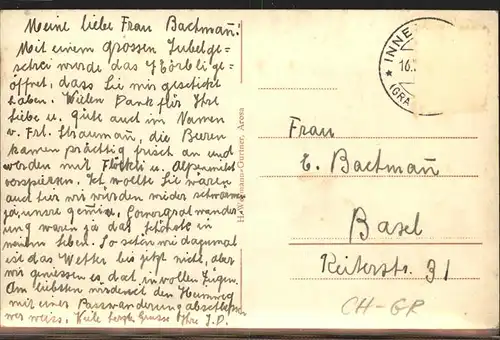 Meine liebe Frau Bachmañ!
Mit einem grossen Jubelge=
schrei wurde das Körbli ge=
öffnet, dass Sie mir geschickt
haben. Vielen Dank für Ihre
Liebe u. Güte auch im Namen
v. Frl. Straumañ, die Beeren
kamen prächtig frisch an und
werden mit Flöckli u. Alpenmilch
verspiesen. Ich wollte Sie wären
auch hier wir würden wieder schwärmen
ja, unsre gemeins. wander=
ung waren ja das schönste in
meinem Leben. So schön wie dazumal
ist das Wetter bis jetzt nicht, aber
wir geniessen es dat in vollen Zügen.
Am liebsten würden den Heimweg
mit einer Passwanderung abschliessen
wer weiss. Viele herzl. Grüsse Ihre J.D.
H. Wissmann-Gurtner, Arosa
INNE
16.
(GRA
Frau
E. Bachmañ
Basel
Reiterstr. 31
CH-GR